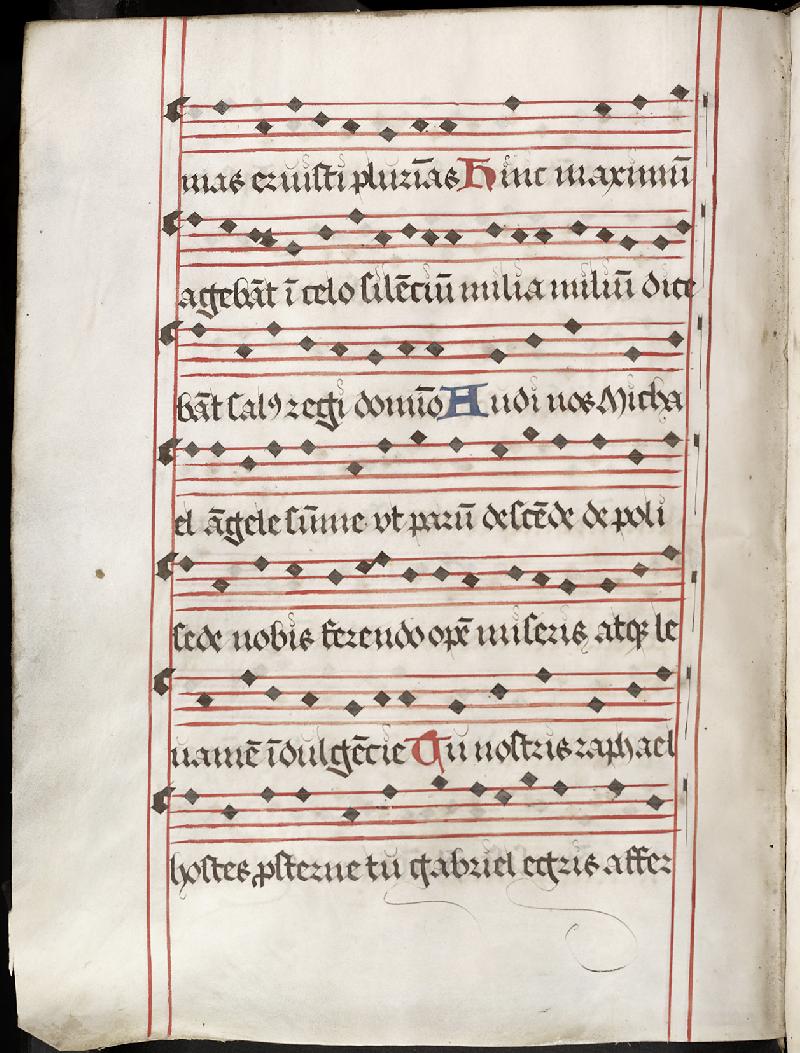 mas eruisti plurīas Hinc maximū
agebāt ī celo silēciū milia miliū dice
bāt salꝰ regi domīo Audi nos Micha
el āgele sūme vt parū descēde de poli
sede nobis ferendo opē miseris atqꝫ le
uamē īdulgēcie Tu nostris raphael
hostes ꝓsterne tu gabriel egris affer